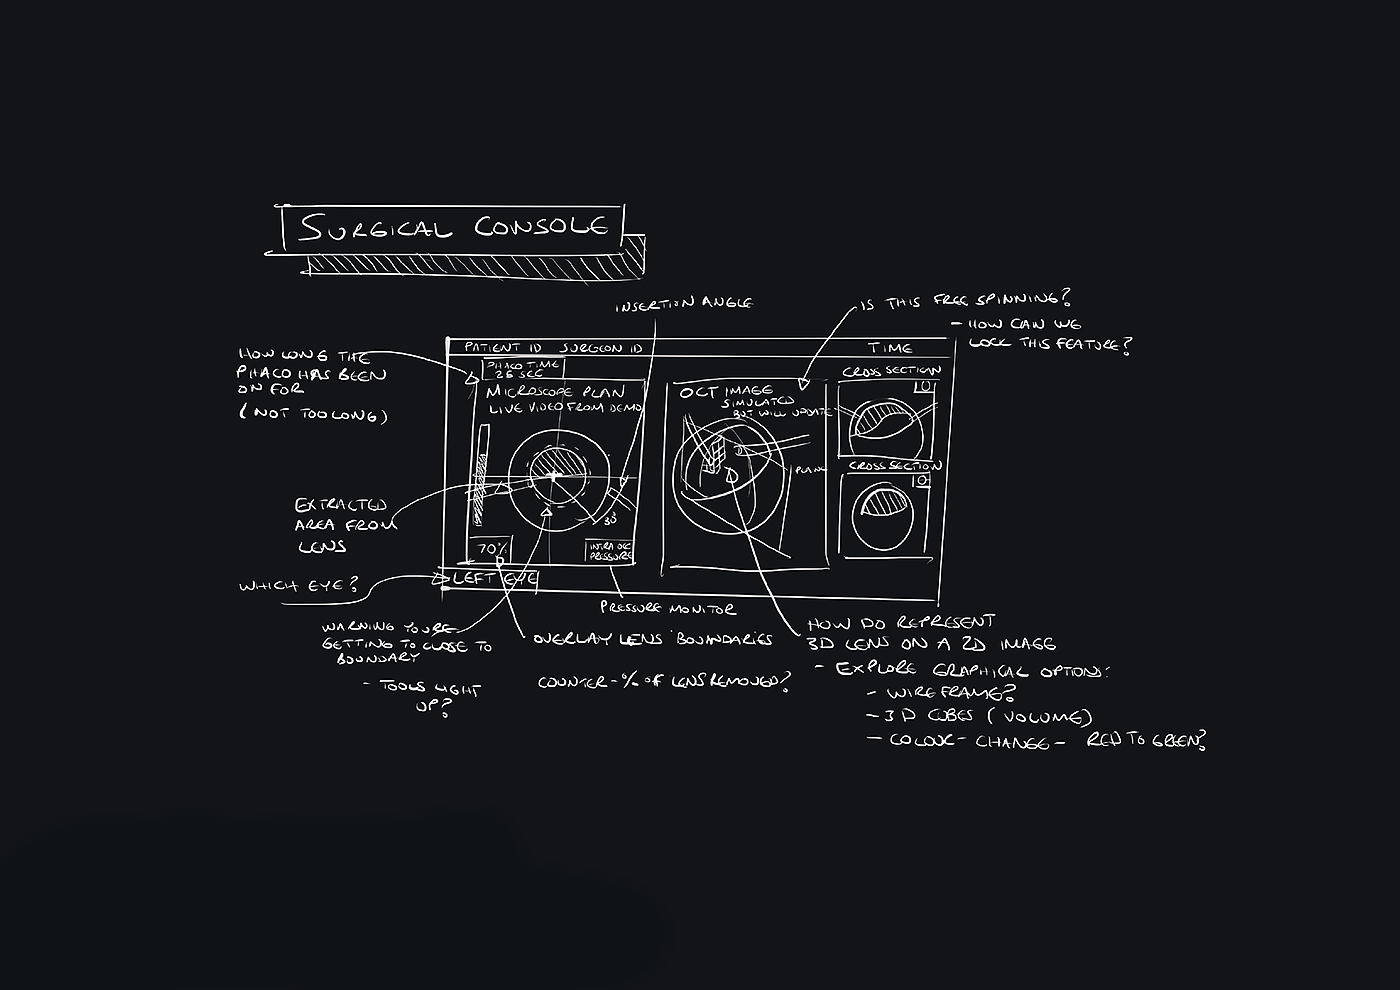 SURGICAL CONSOLE
INSERTION ANGLE
IS THIS FREE SPINNING?
- HOW CAN WE
LOCK THIS FEATURE?
HOW LONG THE
PHACO HAS BEEN
ON FOR
(NOT TOO LONG)
PATIENT ID SURGEON ID
TIME
PHACO TIME
26 SEC
MICROSCOPE PLAN
LIVE VIDEO FROM DEMO
OCT IMAGE
SIMULATED
BUT WILL UPDATE
PLANE
CROSS SECTION
CROSS SECTION
30°
70%
INTRA OCC
PRESSURE
LEFT EYE
EXTRACTED
AREA FROM
LENS
WHICH EYE?
PRESSURE MONITOR
WARNING YOURE
GETTING TO CLOSE TO
BOUNDARY
- TOOLS LIGHT
UP?
OVERLAY LENS BOUNDARIES
COUNTER - % OF LENS REMOVED?
HOW DO REPRESENT
3D LENS ON A 2D IMAGE
- EXPLORE GRAPHICAL OPTIONS:
- WIREFRAME?
- 3D CUBES (VOLUME)
- COLOUR - CHANGE - RED TO GREEN?